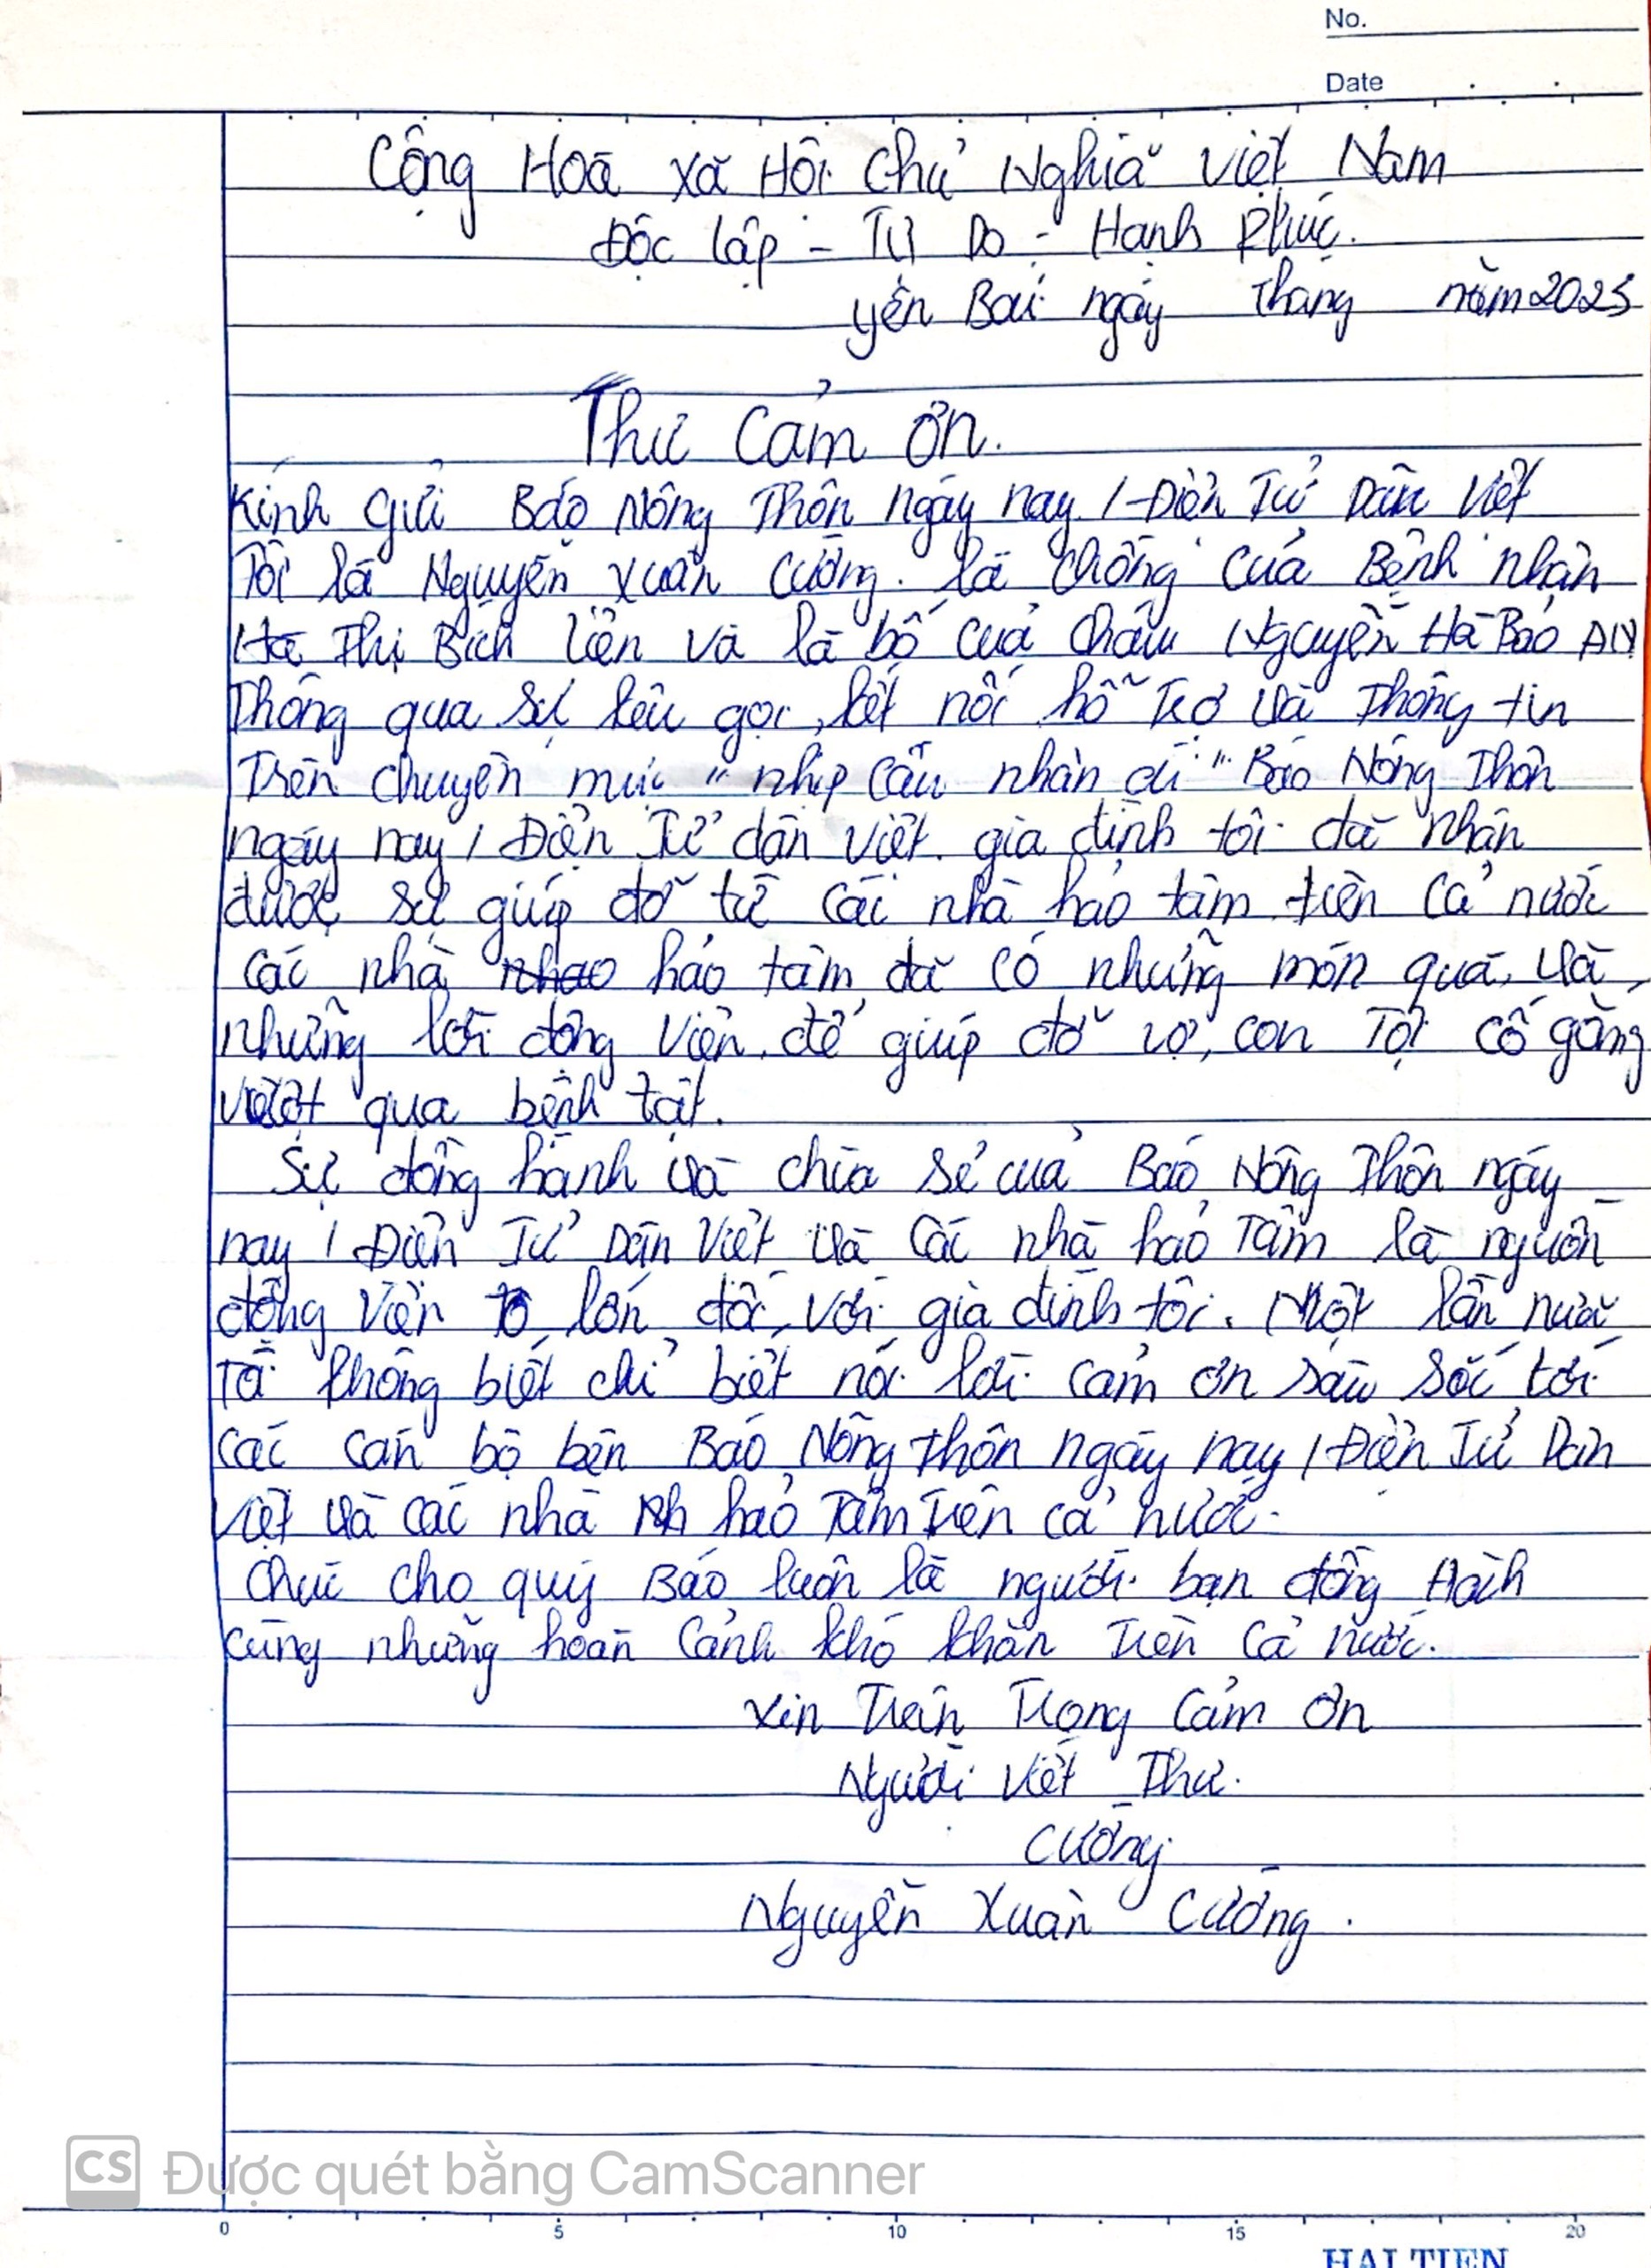 No.
Date
Cộng Hoà Xã Hội Chủ Nghĩa Việt Nam
Độc lập - Tự Do - Hạnh Phúc.
Yên Bái ngày tháng năm 2025
Thư Cảm ơn.
Kính gửi Báo Nông Thôn Ngày nay / Điện Tử Dân Việt
Tôi là Nguyễn Xuân Cường. là chồng của Bệnh nhân
Hà Thị Bích liên và là bố của cháu Nguyễn Hà Bảo AN
Thông qua sự kêu gọi, kết nối hỗ Trợ và Thông tin
Trên chuyên mục "nhịp cầu nhân ái" Báo Nông Thôn
ngày nay / Điện Tử dân việt. gia đình tôi đã nhận
được sự giúp đỡ từ các nhà hảo tâm trên cả nước
các nhà hảo tâm đã có những món quà, và
những lời động viên. để giúp đỡ vợ, con Tôi cố gắng
vượt qua bệnh tật.
Sự đồng hành và chia sẻ của Báo Nông Thôn ngày
nay / Điện Tử Dân Việt và các nhà hảo Tâm là nguồn
động viên to lớn đối với gia đình tôi. Một lần nữa
Tôi không biết chỉ biết nói lời cảm ơn sâu sắc tới
các cán bộ bên Báo Nông thôn ngày nay / Điện Tử Dân
việt và các nhà Nh hảo Tâm Trên cả nước.
Chúc cho quý Báo luôn là người bạn đồng Hành
cùng những hoàn cảnh khó khăn Trên Cả nước.
Xin Trân Trọng Cảm ơn
Người Viết Thư.
Cường
Nguyễn Xuân Cường.
CS Được quét bằng CamScanner
0 5 10 15 20
HAI TIEN